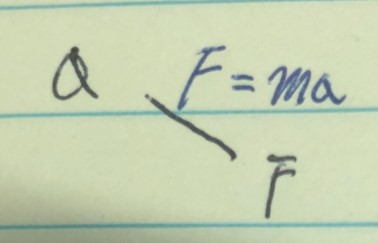 a F = ma
F